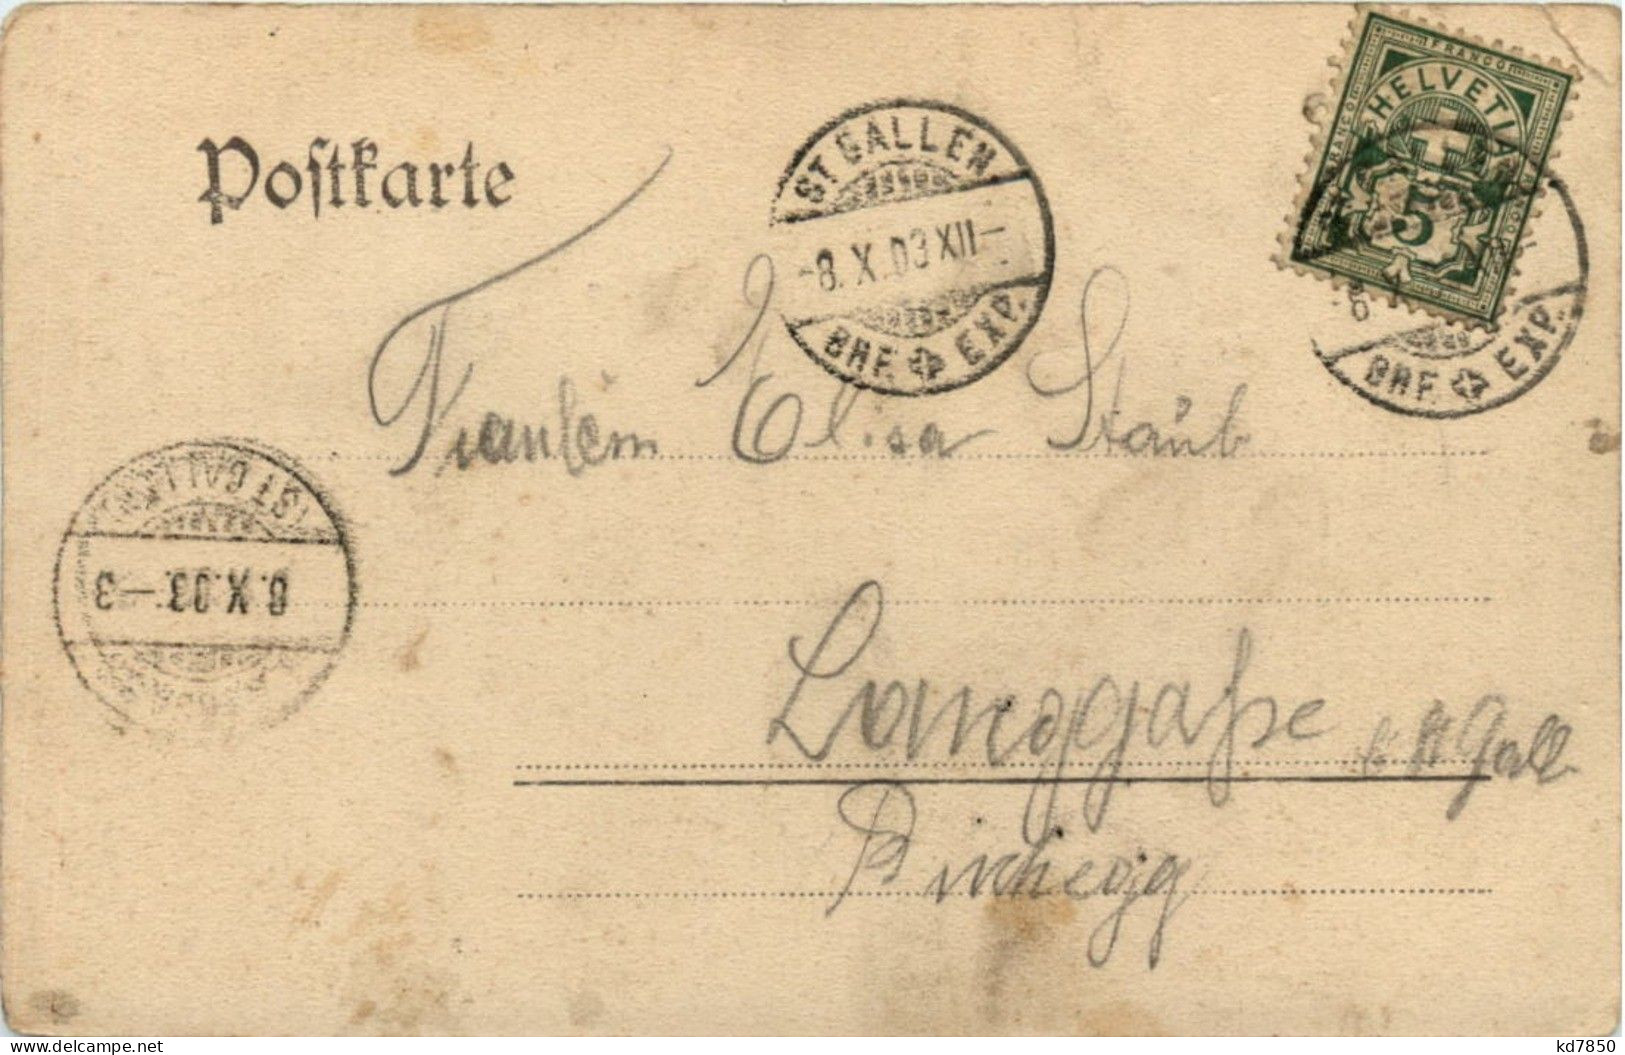 Postkarte
FRANCO
HELVETIA
5
ST. GALLEN.
-8. X. 03 XII-
BRF. EXP.
BRF. EXP.
Fraulein Elisa Staub
(ST GALLEN)
8. X. 03. — 3
Langgaße b. St Gall.
Birchegg
kd7850